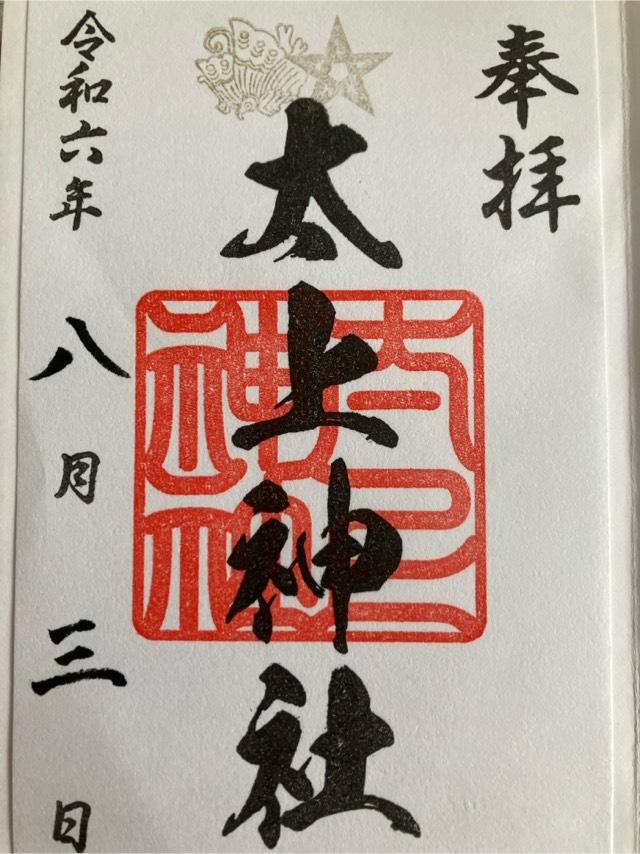 奉拝
太上神社
令和六年八月三日